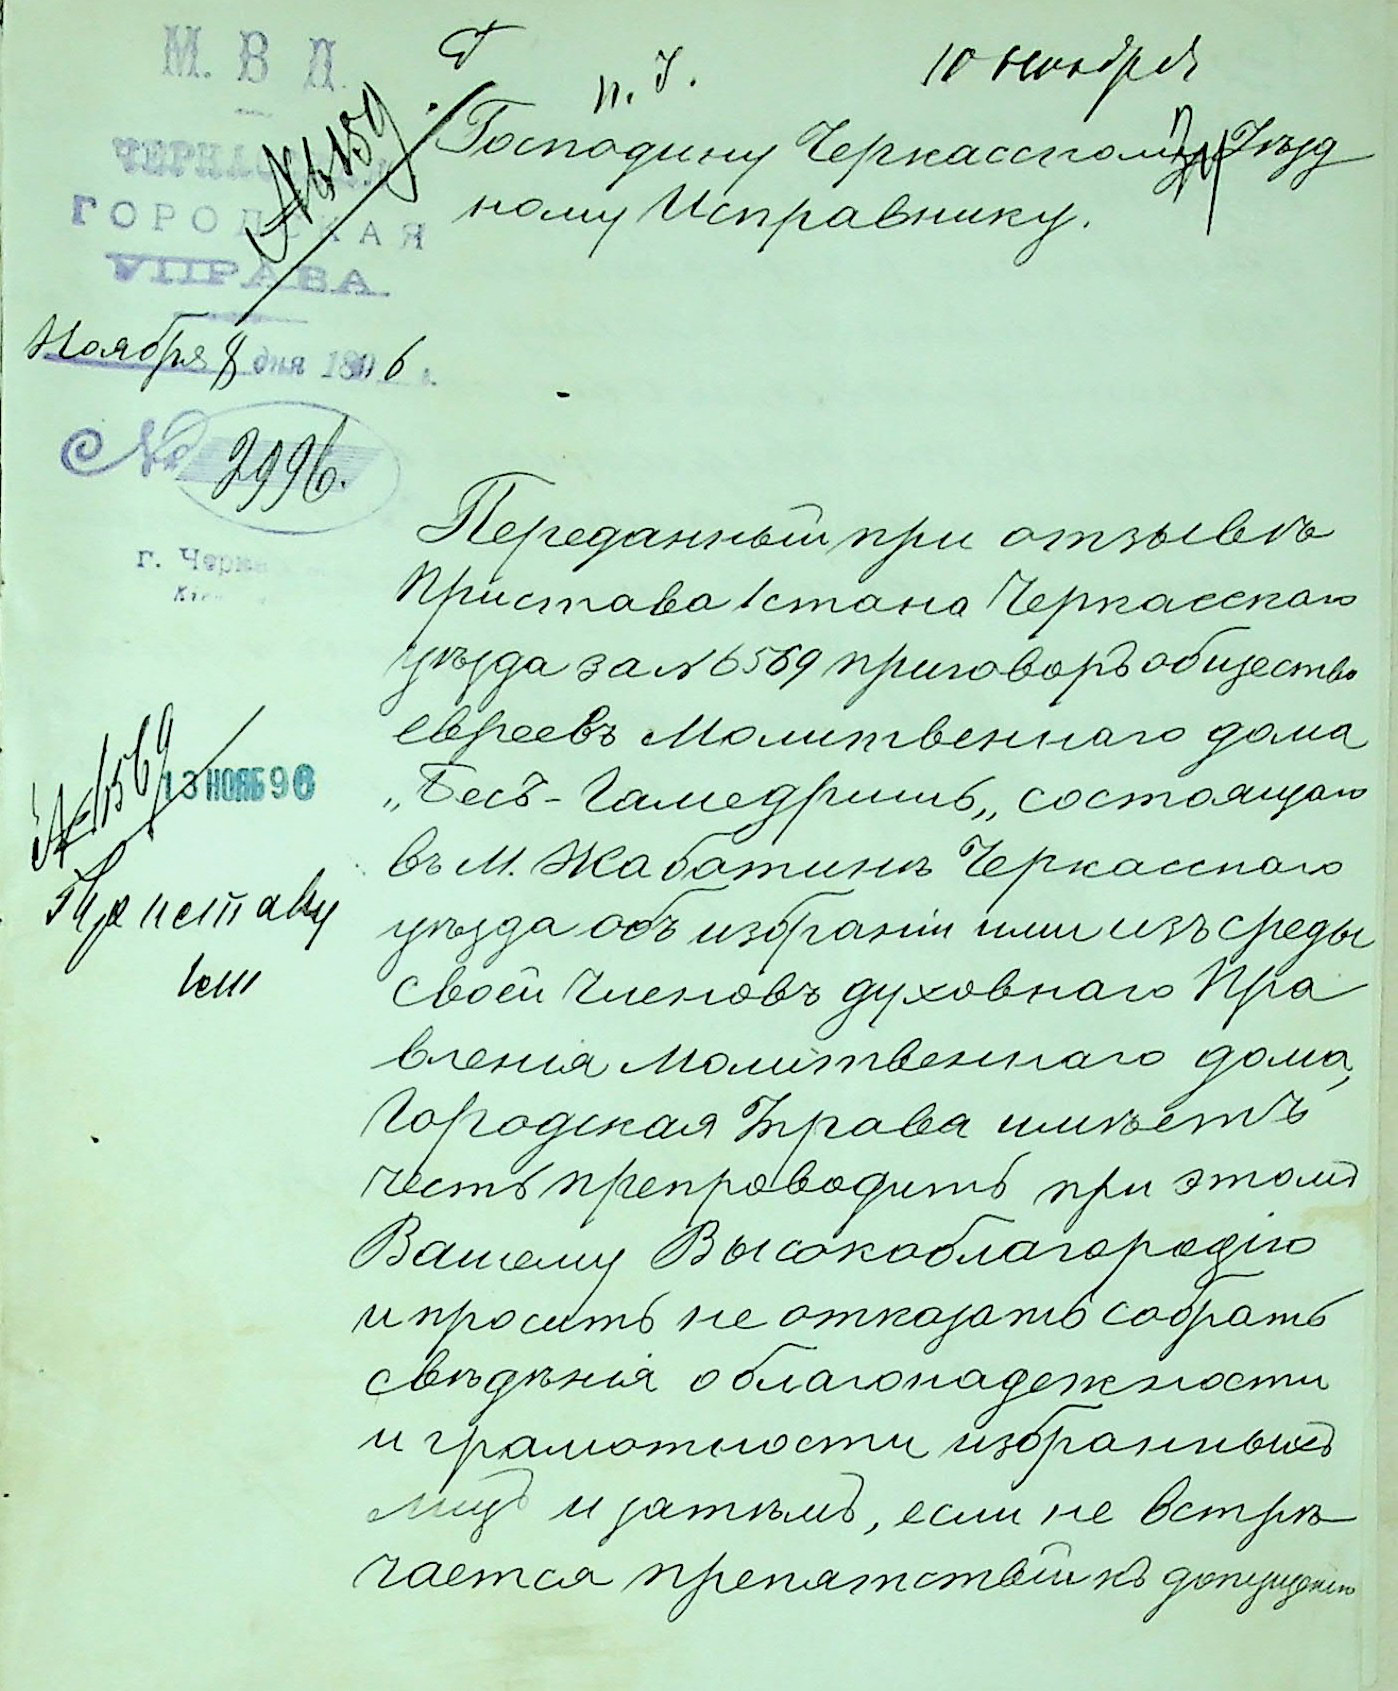 М. В. Д.
ЧЕРКАССКАЯ
ГОРОДСКАЯ
УПРАВА
Ноября 8 дня 1896 г.
№ 2996.
г. Черк
10 Ноября
Господину Черкасскому Уѣзд
ному Исправнику.
Переданный при отзывѣ
Пристава 1 стана Черкасскаго
уѣзда за № 6569 приговоръ общества
евреевъ Молитвеннаго дома
„Бесъ-Гамедришъ„ состоящаго
въ М. Жаботинѣ Черкасскаго
уѣзда объ избраніи ими изъ среды
своей Членовъ духовнаго Пра
вленія Молитвеннаго дома,
Городская Управа имѣетъ
честь препроводить при этомъ
Вашему Высокоблагородію
и просить не отказать собрать
свѣдѣнія о благонадежности
и грамотности избранныхъ
лицъ и затѣмъ, если не встрѣ
чается препятствій къ допущенію
13 НОЯБ 96
Приставу
1 ст